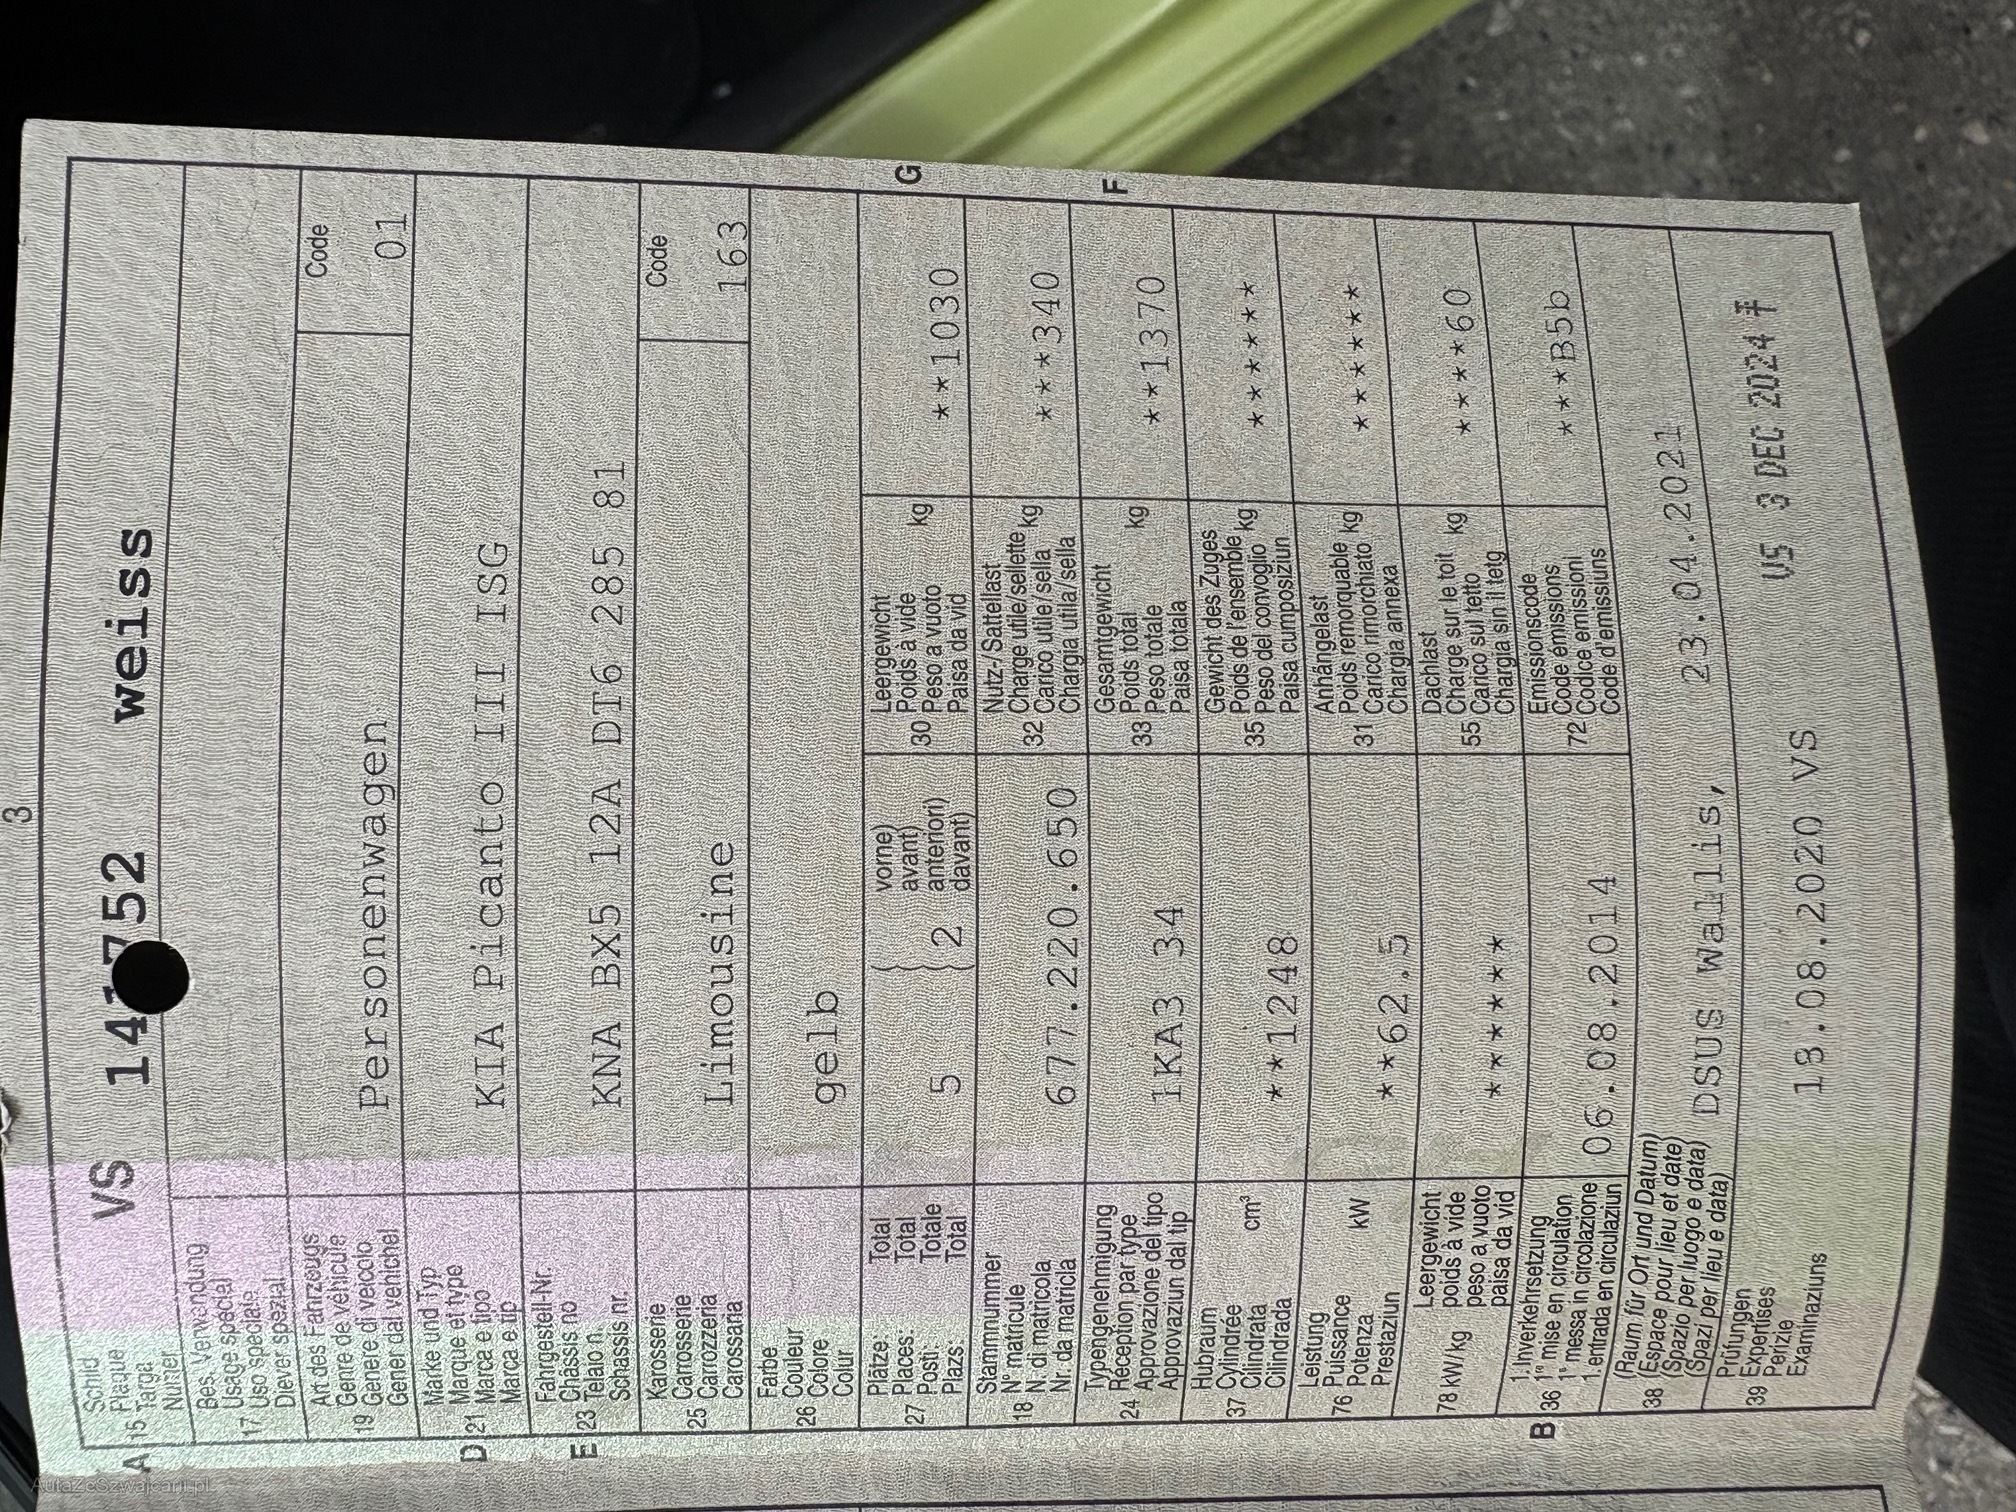 3
A 15 Schild VS 141752 weiss
Plaque
Targa
Numer
17 Bes. Verwendung
Usage spécial
Uso speciale
Diever spezial
19 Art des Fahrzeugs Personenwagen Code 01
Genre de véhicule
Genere di veicolo
Gener dal vehichel
D 21 Marke und Typ KIA Picanto III ISG
Marque et type
Marca e tipo
Marca e tip
E 23 Fahrgestell-Nr. KNA BX5 12A DT6 285 81
Châssis no
Telaio n.
Schassis nr.
25 Karosserie Limousine Code 163
Carrosserie
Carrozzeria
Carossaria
26 Farbe gelb
Couleur
Colore
Colur
27 Plätze: Total 5 2 vorne)
Places: Total avant)
Posti: Totale anteriori)
Plazs: Total davant)
G 30 Leergewicht kg **1030
Poids à vide
Peso a vuoto
Paisa da vid
18 Stammnummer 677.220.650
N° matricule
N. di matricola
Nr. da matricla
32 Nutz-/Sattellast kg ***340
Charge utile/sellette
Carico utile/sella
Chargia utila/sella
24 Typengenehmigung 1KA3 34
Réception par type
Approvazione del tipo
Approvaziun dal tip
F 33 Gesamtgewicht kg **1370
Poids total
Peso totale
Paisa totala
37 Hubraum cm³ **1248
Cylindrée
Cilindrata
Cilindrada
35 Gewicht des Zuges kg ******
Poids de l'ensemble
Peso del convoglio
Paisa cumposiziun
76 Leistung kW **62.5
Puissance
Potenza
Prestaziun
31 Anhängelast kg ******
Poids remorquable
Carico rimorchiato
Chargia annexa
78 kW/kg Leergewicht ******
poids à vide
peso a vuoto
paisa da vid
55 Dachlast kg ****60
Charge sur le toit
Carico sul tetto
Chargia sin il tetg
B 36 1. Inverkehrsetzung 06.08.2014
1re mise en circulation
1a messa in circolazione
1. entrada en circulaziun
72 Emissionscode ***B5b
Code émissions
Codice emissioni
Code d'emissiuns
38 (Raum für Ort und Datum)
(Espace pour lieu et date)
(Spazio per luogo e data)
(Spazi per lieu e data)
DSUS Wallis, 23.04.2021
39 Prüfungen
Expertises
Perizie
Examinaziuns
13.08.2020 VS
VS 3 DEC 2024
AutaZeSzwajcarii.pl